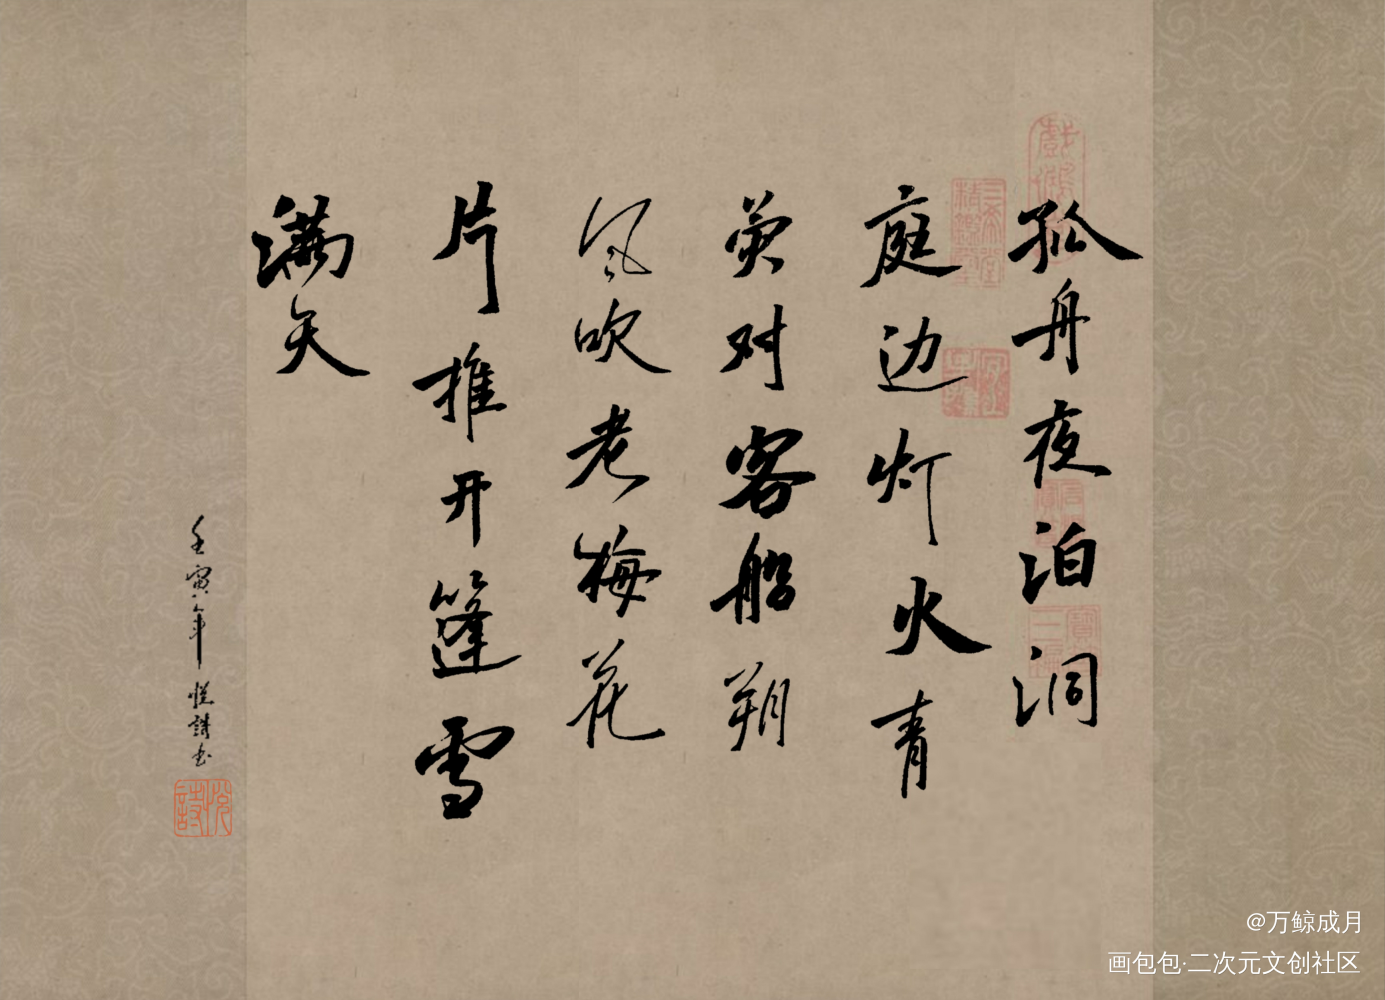 孤舟夜泊洞
庭边灯火青
荧对客船朔
风吹老梅花
片推开篷雪
满天
壬寅年悦诗书
悦诗
@万鲸成月
画包包·二次元文创社区